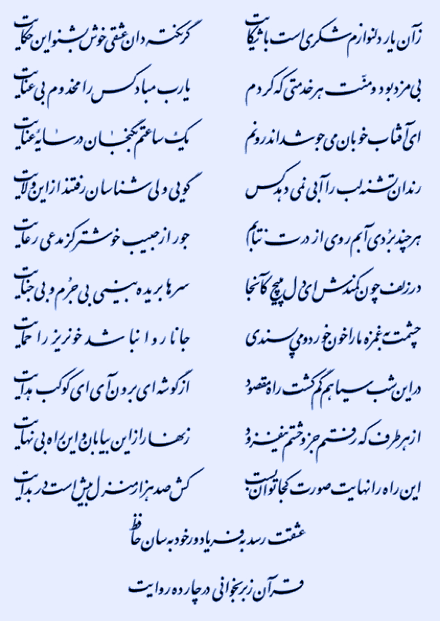 زآن یار دلنوازم شکری‌است با شکایت گر نکته‌دان عشقی خوش بشنو این حکایت
بی مزد بود و منّت هر خدمتی که کردم یارب مباد کس را مخدوم بی عنایت
ای آفتاب خوبان می‌جوشد اندرونم یک ساعتم بگنجان در سایهٔ عنایت
رندان تشنه لب را آبی نمی‌دهد کس گویی ولی شناسان رفتند از این ولایت
هر چند بردی آبم روی از درت نتابم جور از حبیب خوشتر کز مدعی رعایت
در زلف چون کمندش ای دل مپیچ کآنجا سرها بریده بینی بی جرم و بی جنایت
چشمت به غمزه ما را خون خورد و می‌پسندی جانا روا نباشد خونریز را حمایت
در این شب سیاهم گم گشت راه مقصود از گوشه‌ای برون آی ای کوکب هدایت
از هر طرف که رفتم جز وحشتم نیفزود زنهار از این بیابان وین راه بی نهایت
این راه را نهایت صورت کجا توان بست کش صد هزار منزل بیش است در بدایت
عشقت رسد به فریاد ور خود به سان حافظ
قرآن ز بر بخوانی در چارده روایت